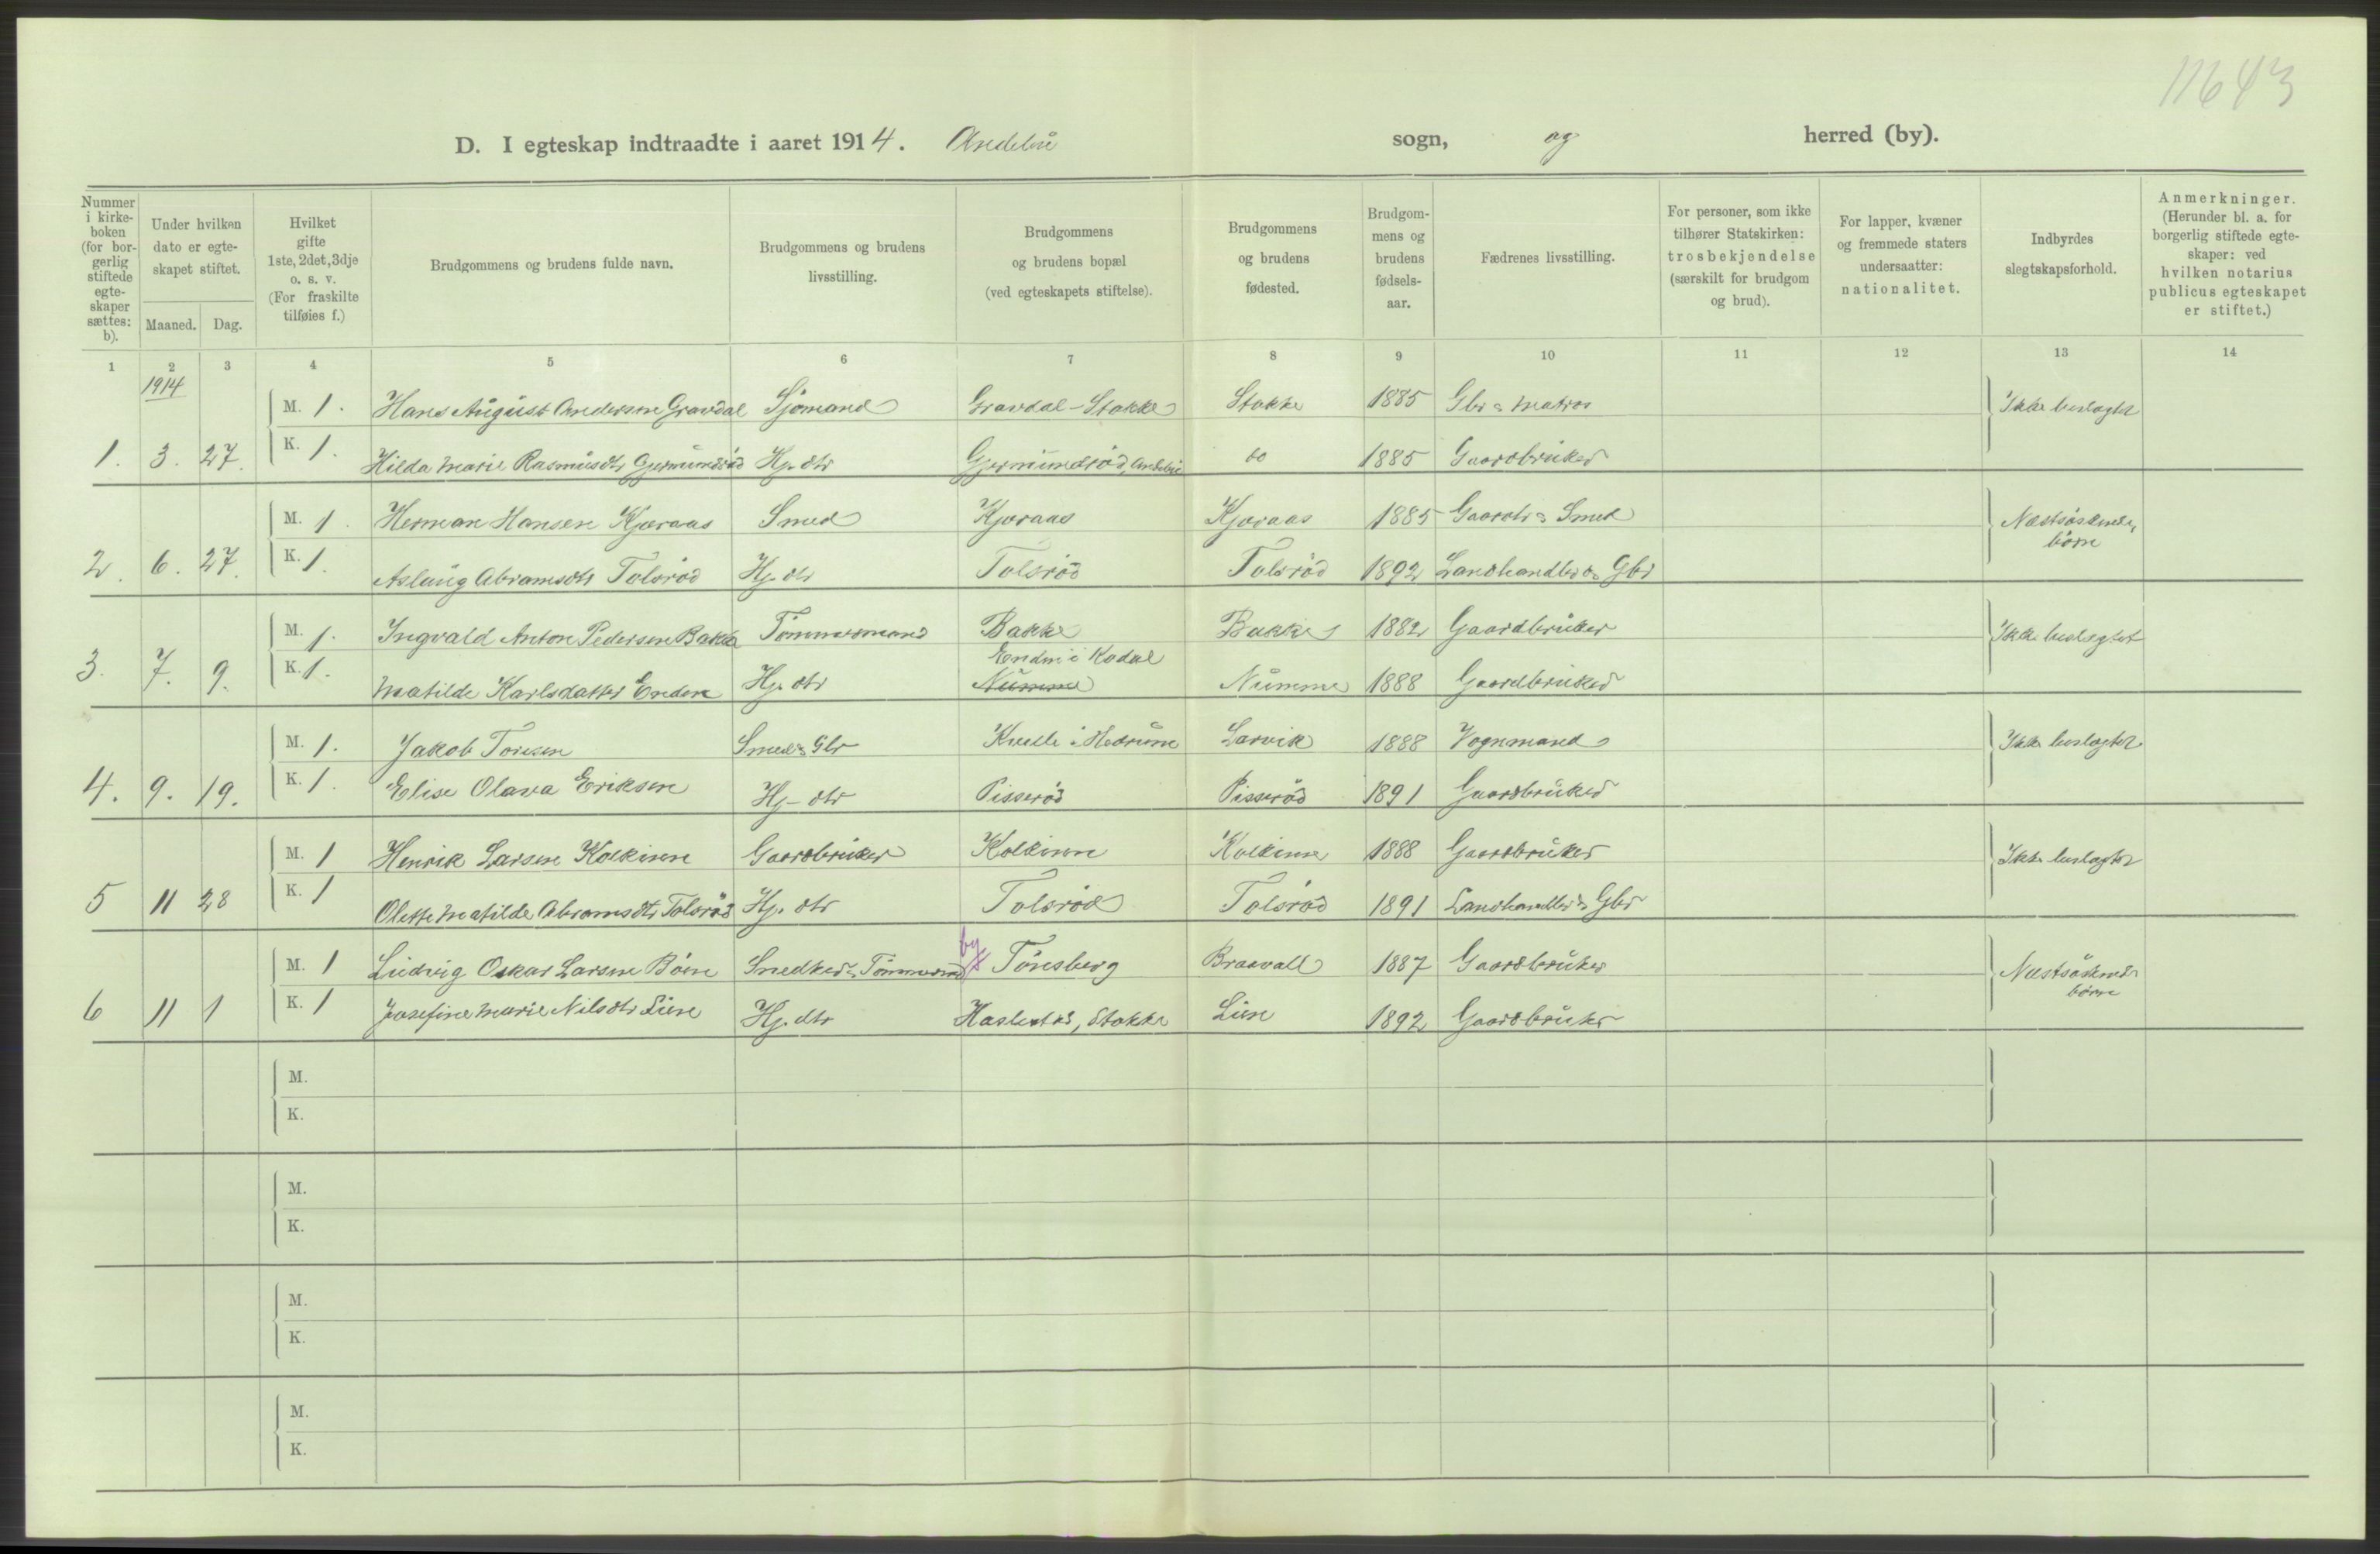 11643
D. I egteskap indtraadte i aaret 1914. Andebu sogn, og herred (by).
Nummer i kirkeboken (for borgerlig stiftede egteskaper sættes: b).
Under hvilken dato er egteskapet stiftet.
Maaned. Dag.
Hvilket gifte 1ste, 2det, 3dje o. s. v. (For fraskilte tilføies f.)
Brudgommens og brudens fulde navn.
Brudgommens og brudens livsstilling.
Brudgommens og brudens bopæl (ved egteskapets stiftelse).
Brudgommens og brudens fødested.
Brudgommens og brudens fødselsaar.
Fædrenes livsstilling.
For personer, som ikke tilhører Statskirken: trosbekjendelse (særskilt for brudgom og brud).
For lapper, kvæner og fremmede staters undersaatter: nationalitet.
Indbyrdes slegtskapsforhold.
Anmerkninger. (Herunder bl. a. for borgerlig stiftede egteskaper: ved hvilken notarius publicus egteskapet er stiftet.)
1 2 3 4 5 6 7 8 9 10 11 12 13 14
1914
M. 1. Hans August Andersen Gravdal Sjømand Gravdal - Stokke Stokke 1885 Gbr & Matros Ikke beslegtet
1. 3. 27. K. 1. Hilda Marie Rasmusdtr Gjermundrød Hj. dtr Gjermundrød, Andebu do 1885 Gaardbruker
M. 1. Herman Hansen Kjæraas Smed Kjæraas Kjæraas 1885 Gaardbr & Smed Næstsøskende,
børn
2. 6. 27. K. 1. Aslaug Abramsdtr Tolsrød Hj. dtr Tolsrød Tolsrød 1892 Landhandler & Gbr
M. 1. Ingvald Anton Pedersen Bakke Tømmermand Bakke Bakke 1882 Gaardbruker Ikke beslegtet
Enden i Kodal
3. 7. 9. K. 1. Matilde Karlsdatter Enden Hj. dtr Numme Numme 1888 Gaardbruker
M. 1. Jakob Toresen Smed & Gbr i Hedrum Larvik 1888 Vognmand Ikke beslegtet
4. 9. 19. K. 1. Elise Olava Eriksen Hj - dtr Pisserød Pisserød 1891 Gaardbruker
M. 1 Henrik Larsen Kolkinn Gaardbruker Kolkinn Kolkinn 1888 Gaardbruker Ikke beslegtet
5 11 28 K. 1 Olette Matilde Abramsdtr Tolsrød Hj. dtr Tolsrød Tolsrød 1891 Landhandler & Gbr
by
M. 1 Ludvig Oskar Larsen Bøen Snedker & Tømmermd Tønsberg Braavall 1887 Gaardbruker Næstsøskende
børn
6 11 1 K. 1 Josefine Marie Nilsdtr Lien Hj. dtr Haslestad, Stokke Lien 1892 Gaardbruker
M.
K.
M.
K.
M.
K.
M.
K.